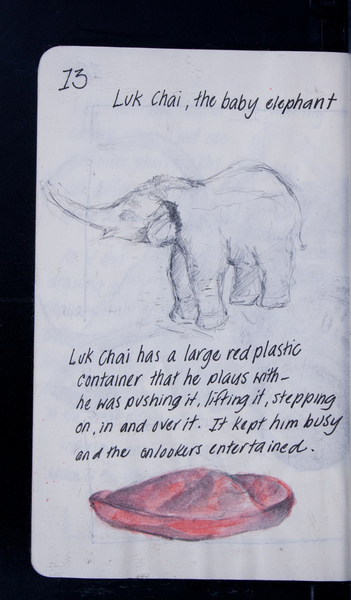 13
Luk Chai, the baby elephant
Luk Chai has a large red plastic
container that he plays with-
he was pushing it, lifting it, stepping
on, in and over it. It kept him busy
and the onlookers entertained.